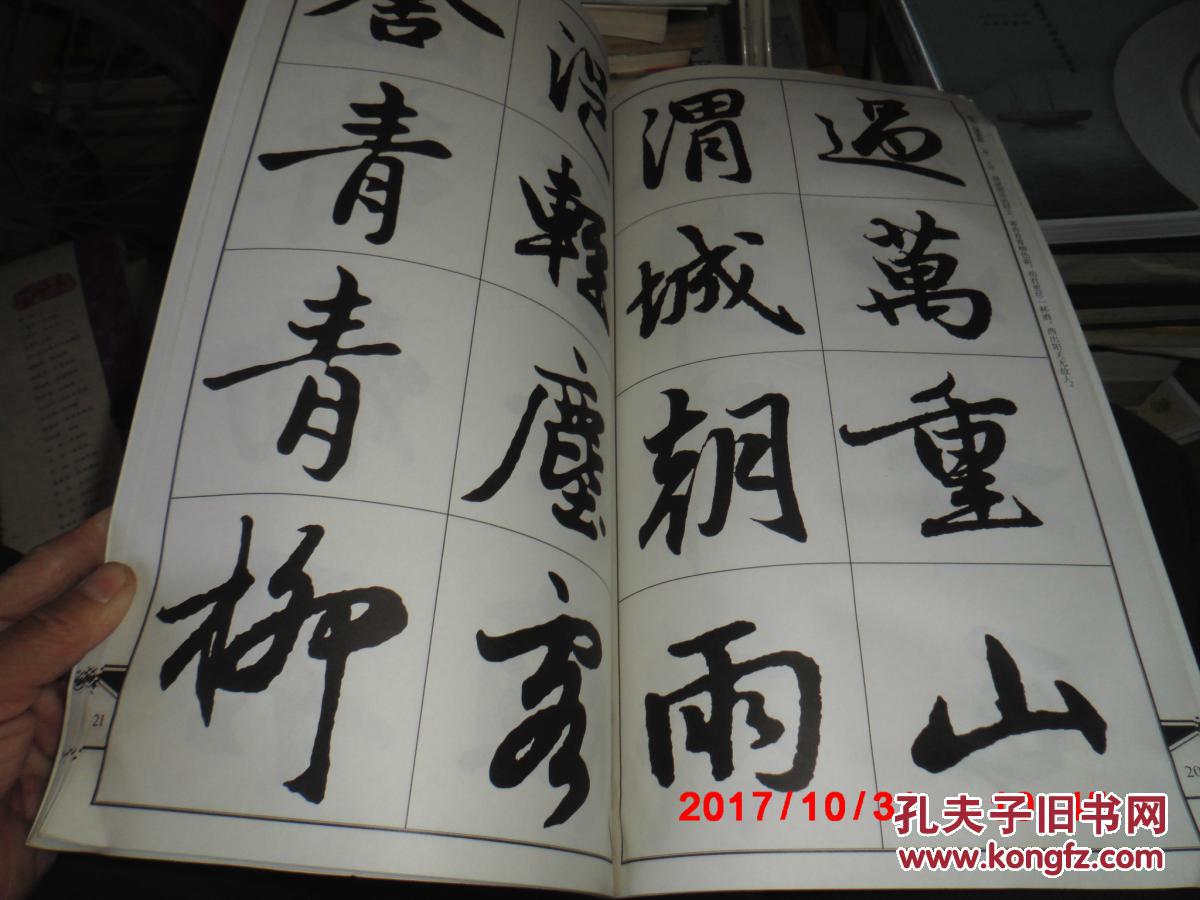 過萬重山
渭城朝雨
浥輕塵客
舍青青柳
20
21
2017/10/3
孔夫子旧书网
www.kongfz.com